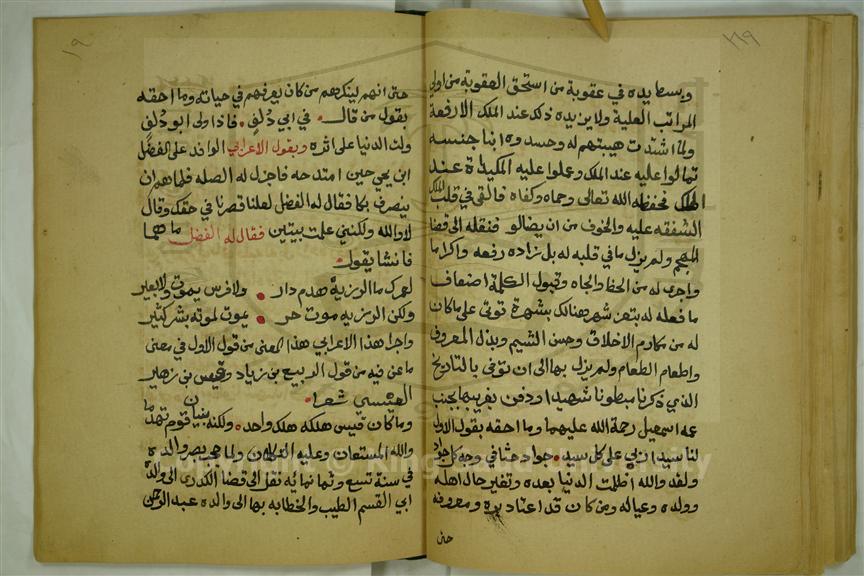 ١١٩
وبسط يده في عقوبة من استحق العقوبة من اولي
المراتب العلية ولا يزيده ذلك عند الملك الا رفعة
ولما اشتدت هيبتهم له وحسدوه ابنا جنسه
تمالوا عليه عند الملك وعملوا عليه المكيدة عند
الملك فحفظه الله تعالى وحماه وكفاه فالقى في قلب الملك
الشفقه عليه والخوف من ان يضالو فنقله الى قضا
المهجم ولم يزل ما في قلبه له بل زاده رفعه واكراما
واجرى له من الحظ والجاه وقبول الكلمة اضعاف
ما فعله له بتعز شهر هنالك بشهرة توفي على ما كان
له من مكارم الاخلاق وحسن الشيم وبذل المعروف
واطعام الطعام ولم يزل بها الى ان توفي بالتاريخ
الذي ذكرنا مبطونا شهيدا ودفن بقريبها بجنب
عمه اسمعيل رحمة الله عليهما وما احقه بقول الاول
لنا سيد اربى على كل سيد جواد حثا في وجه كل جواد
ولقد والله اظلمت الدنيا بعده وتغير حال اهله
وولده وعياله ومن كان قد اعتاد بره ومعروفه
حتى
١٩
حتى انهم لينكرهم من كان يعرفهم في حياته وما احقه
بقول من قال في ابي دلف فاذا ولى ابو دلف
ولت الدنيا على اثره وبقول الاعرابي الوافد على الفضل
ابن يحيى حين امتدحه فاجزل له الصله فلما هم ان
ينصرف بكا فقال له الفضل لعلنا قصرنا في حقك وقال
لا والله ولكنني علمت بيتين فقال له الفضل ما هما
فانشا يقول
لعمرك ما الرزية هدم دار ولا فرس يموت ولا بعير
ولكن الرزيه موت حر يموت لموته بشر كثير
واجرا هذا الاعرابي هذا المعنى من قول الاول في معنى
ما عن فيه من قول الربيع بن زياد وقيس بن زهير
العبسي شعرا
وما كان قيس هلكه هلك واحد ولكنه بنيان قوم تهدما
والله المستعان وعليه التكلان ولما حج بصر والده
في سنة تسع وثمانمائه نقل الى قضا الكدرى الى ولده
ابي القسم الطيب والخطابه بها الى والده عبد الرحمن